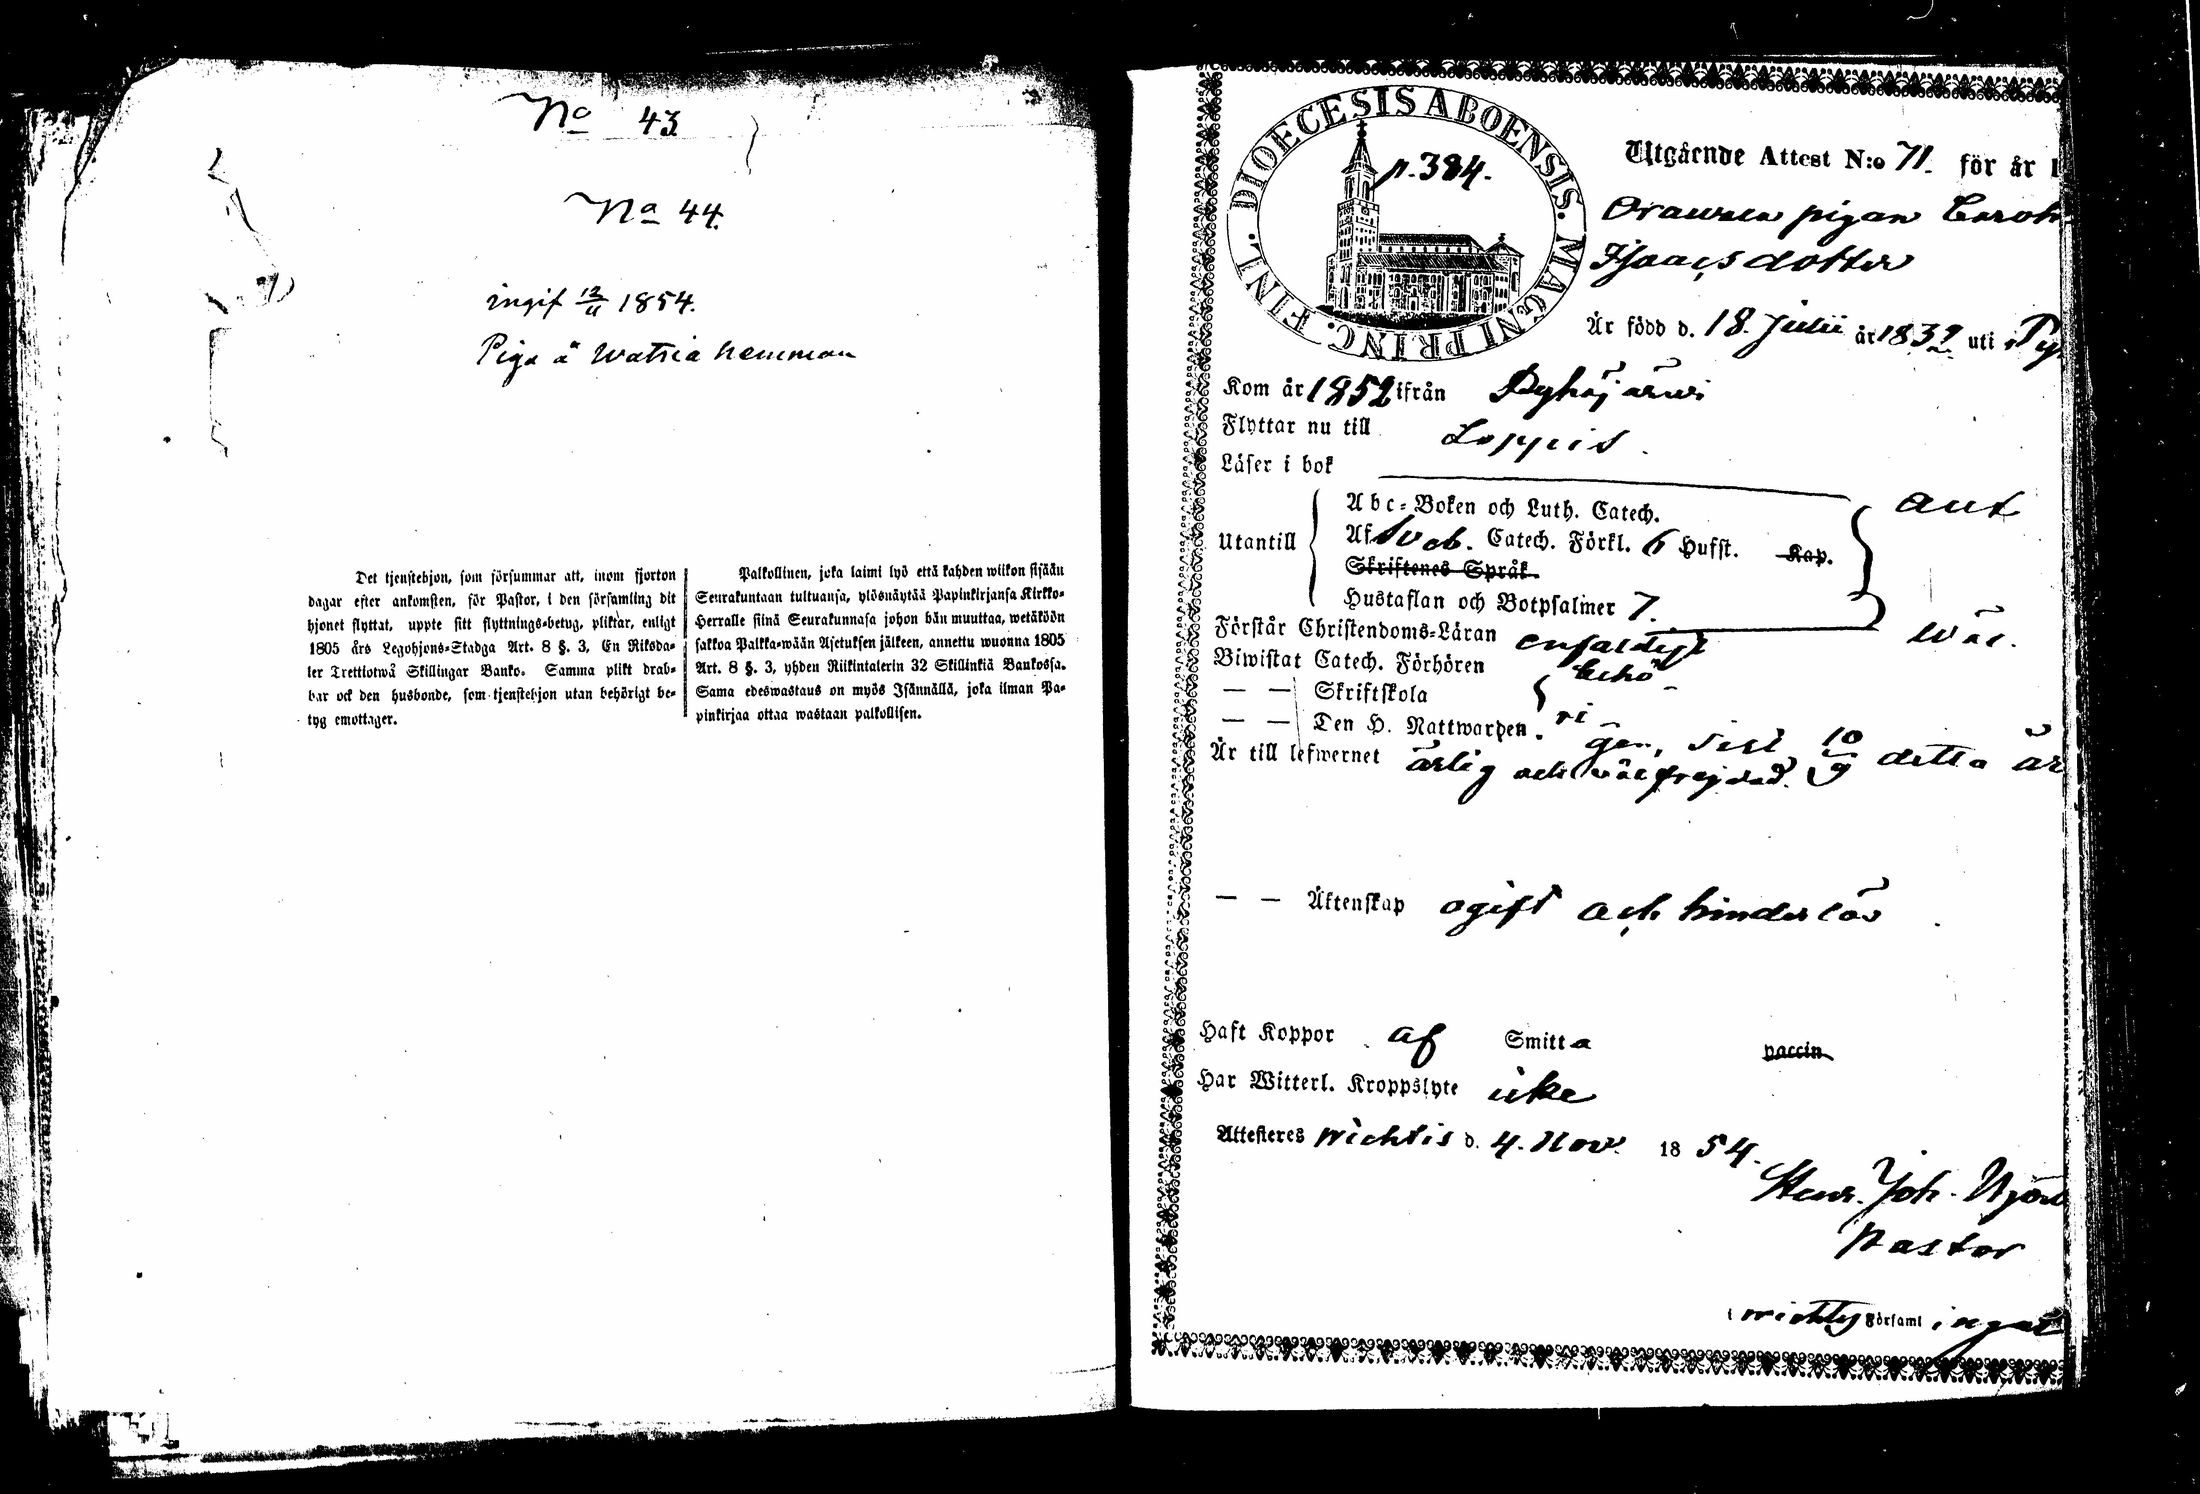 No 43
No 44.
ingif 12/11 1854.
Piga å Watsia hemman
Det tjenstehjon, som försummar att, inom fjorton
dagar efter ankomsten, för Pastor, i den församling dit
hjonet flyttat, uppte sitt flyttnings-betyg, pliktar, enligt
1805 års Legohjons-Stadga Art. 8 §. 3, En Riksda-
ler Trettiotwå Skillingar Banko. Samma plikt drab-
bar ock den husbonde, som tjenstehjon utan behörigt be-
tyg emottager.
Palkollinen, joka laimi lyö että kahden wiikon sisään
Seurakuntaan tultuansa, ylösnäytää Papinkirjansa Kirkko-
Herralle siinä Seurakunnasa johon hän muuttaa, wetäköön
sakkoa Palkka-wään Asetuksen jälkeen, annettu wuonna 1805
Art. 8 §. 3, yhden Riikintalerin 32 Skillinkiä Bankossa.
Sama edeswastaus on myös Isännällä, joka ilman Pa-
pinkirjaa ottaa wastaan palkollisen.
DIOECESIS ABOENSIS. MAGNI PRINC. FINL.
p. 384.
Utgående Attest N:o 71. för år 1
pigan Caroli
Isaacsdotter
Är född d. 18. Julii år 1839 uti Py
Kom år 1852 ifrån Pyhäjärwi
Flyttar nu till Loppis.
Läser i bok
Utantill
Abc-Boken och Luth. Catech.
Af Sveb. Catech. Förkl. 6 Hufst. Kap.
Skriftenes Språk.
Hustaflan och Botpsalmer 7.
Förstår Christendoms-Läran enfaldigt wäl.
Biwistat Catech. Förhören behö
— — Skriftskola
— — Den H. Nattwarden. ri-
gen, sist 10/9 detta år
Är till lefwernet ärlig och wälfrejdad.
— — Äktenskap ogift och hinderlös
Haft Koppor af Smitta vaccin
Har Witterl. Kroppslyte icke
Attesteres Wichtis d. 4. Nov. 1854.
Henr. Joh.
Pastor
i Församl